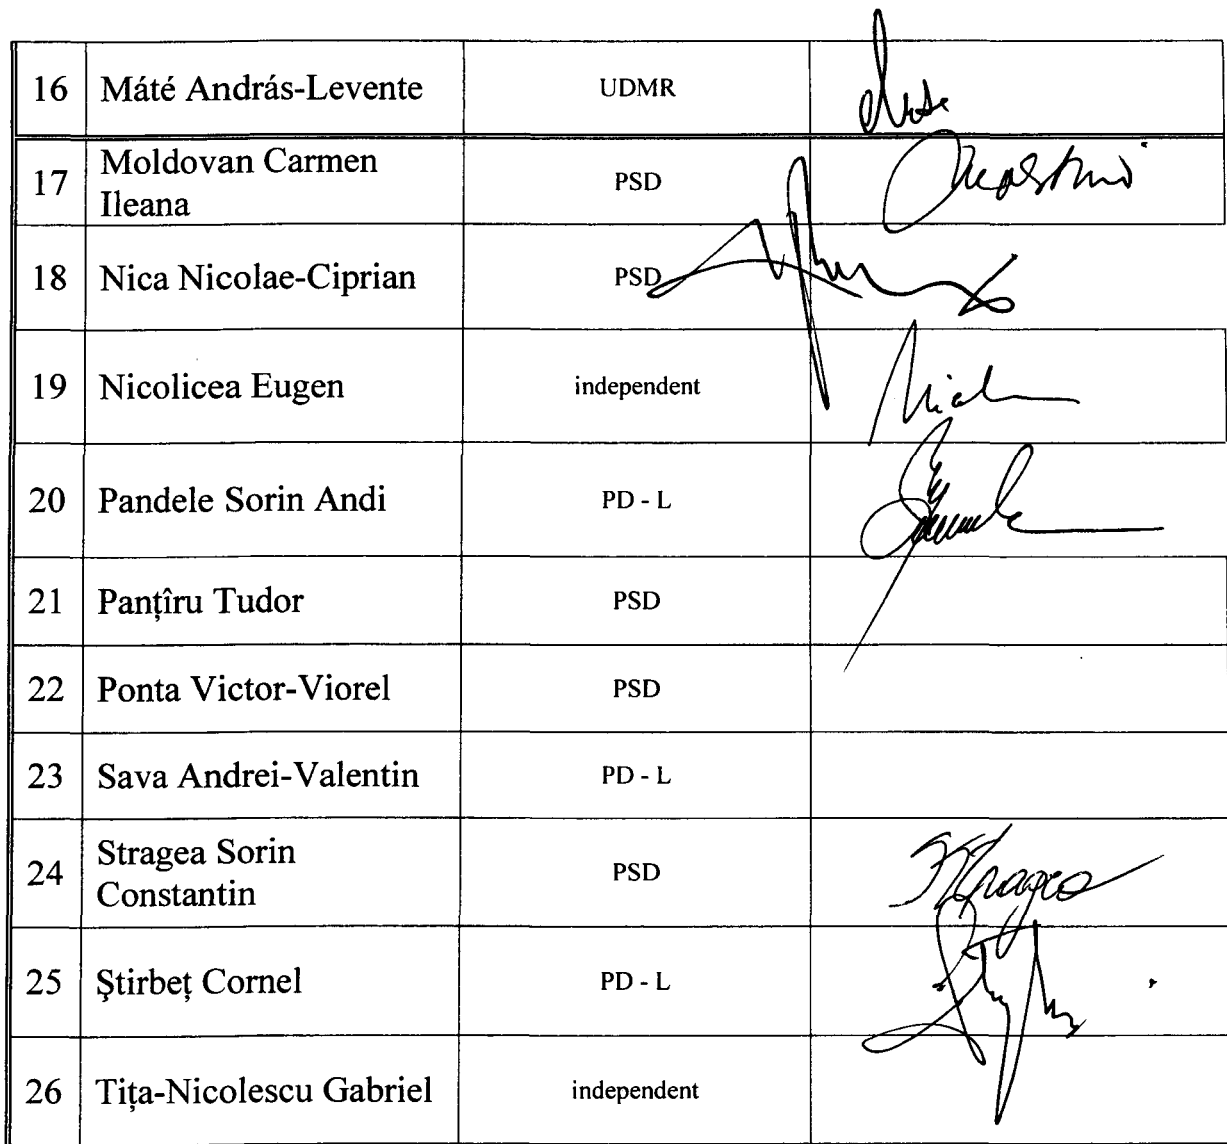 16 Máté András-Levente UDMR
17 Moldovan Carmen
Ileana PSD
18 Nica Nicolae-Ciprian PSD
19 Nicolicea Eugen independent
20 Pandele Sorin Andi PD - L
21 Panţîru Tudor PSD
22 Ponta Victor-Viorel PSD
23 Sava Andrei-Valentin PD - L
24 Stragea Sorin
Constantin PSD
25 Ştirbeţ Cornel PD - L
26 Tiţa-Nicolescu Gabriel independent